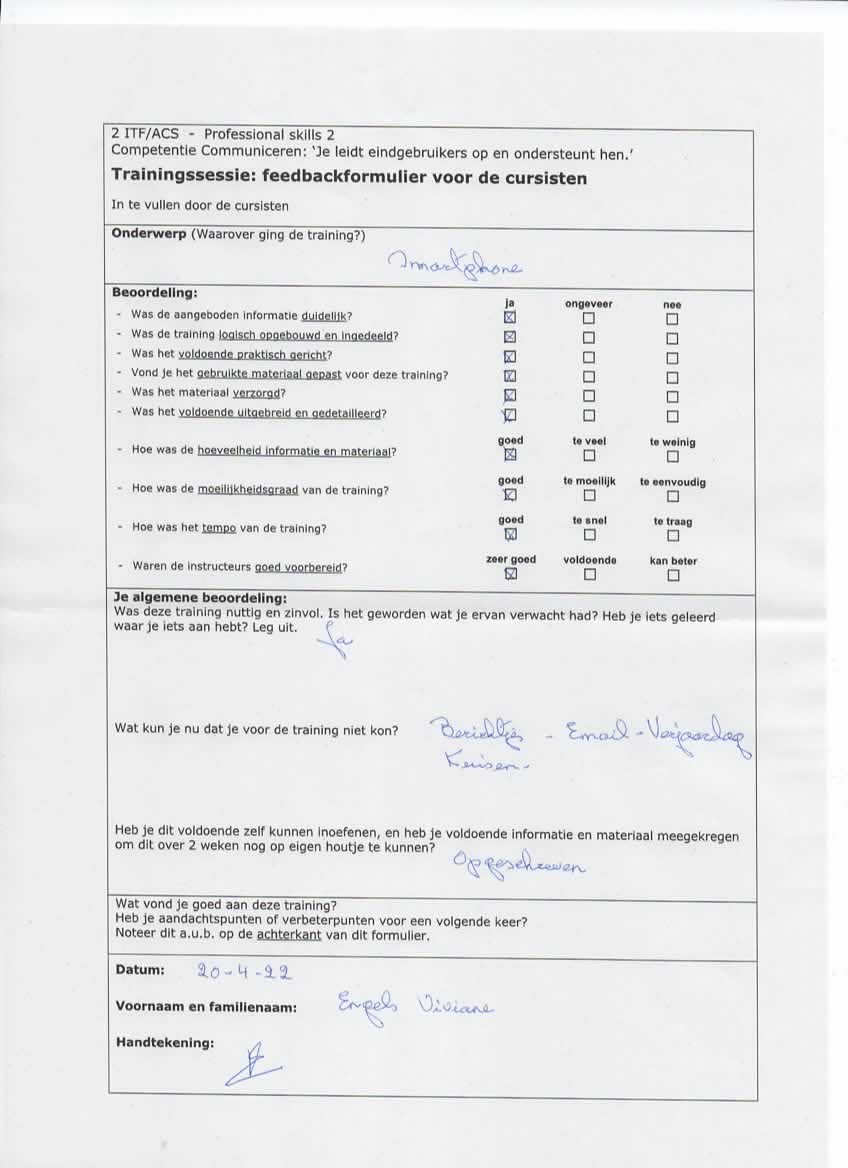 2 ITF/ACS - Professional skills 2
Competentie Communiceren: 'Je leidt eindgebruikers op en ondersteunt hen.'
Trainingssessie: feedbackformulier voor de cursisten
In te vullen door de cursisten
Onderwerp (Waarover ging de training?)
Smartphone
Beoordeling:
ja ongeveer nee
- Was de aangeboden informatie duidelijk? ☒ ☐ ☐
- Was de training logisch opgebouwd en ingedeeld? ☒ ☐ ☐
- Was het voldoende praktisch gericht? ☒ ☐ ☐
- Vond je het gebruikte materiaal gepast voor deze training? ☒ ☐ ☐
- Was het materiaal verzorgd? ☒ ☐ ☐
- Was het voldoende uitgebreid en gedetailleerd? ☒ ☐ ☐
goed te veel te weinig
- Hoe was de hoeveelheid informatie en materiaal? ☒ ☐ ☐
goed te moeilijk te eenvoudig
- Hoe was de moeilijkheidsgraad van de training? ☒ ☐ ☐
goed te snel te traag
- Hoe was het tempo van de training? ☒ ☐ ☐
zeer goed voldoende kan beter
- Waren de instructeurs goed voorbereid? ☒ ☐ ☐
Je algemene beoordeling:
Was deze training nuttig en zinvol. Is het geworden wat je ervan verwacht had? Heb je iets geleerd
waar je iets aan hebt? Leg uit.
Ja
Wat kun je nu dat je voor de training niet kon? Berichtjes - Email - Verjaardag
Keuisen-
Heb je dit voldoende zelf kunnen inoefenen, en heb je voldoende informatie en materiaal meegekregen
om dit over 2 weken nog op eigen houtje te kunnen?
Opgeschreven
Wat vond je goed aan deze training?
Heb je aandachtspunten of verbeterpunten voor een volgende keer?
Noteer dit a.u.b. op de achterkant van dit formulier.
Datum: 20-4-22
Voornaam en familienaam: Engels Viviane
Handtekening: